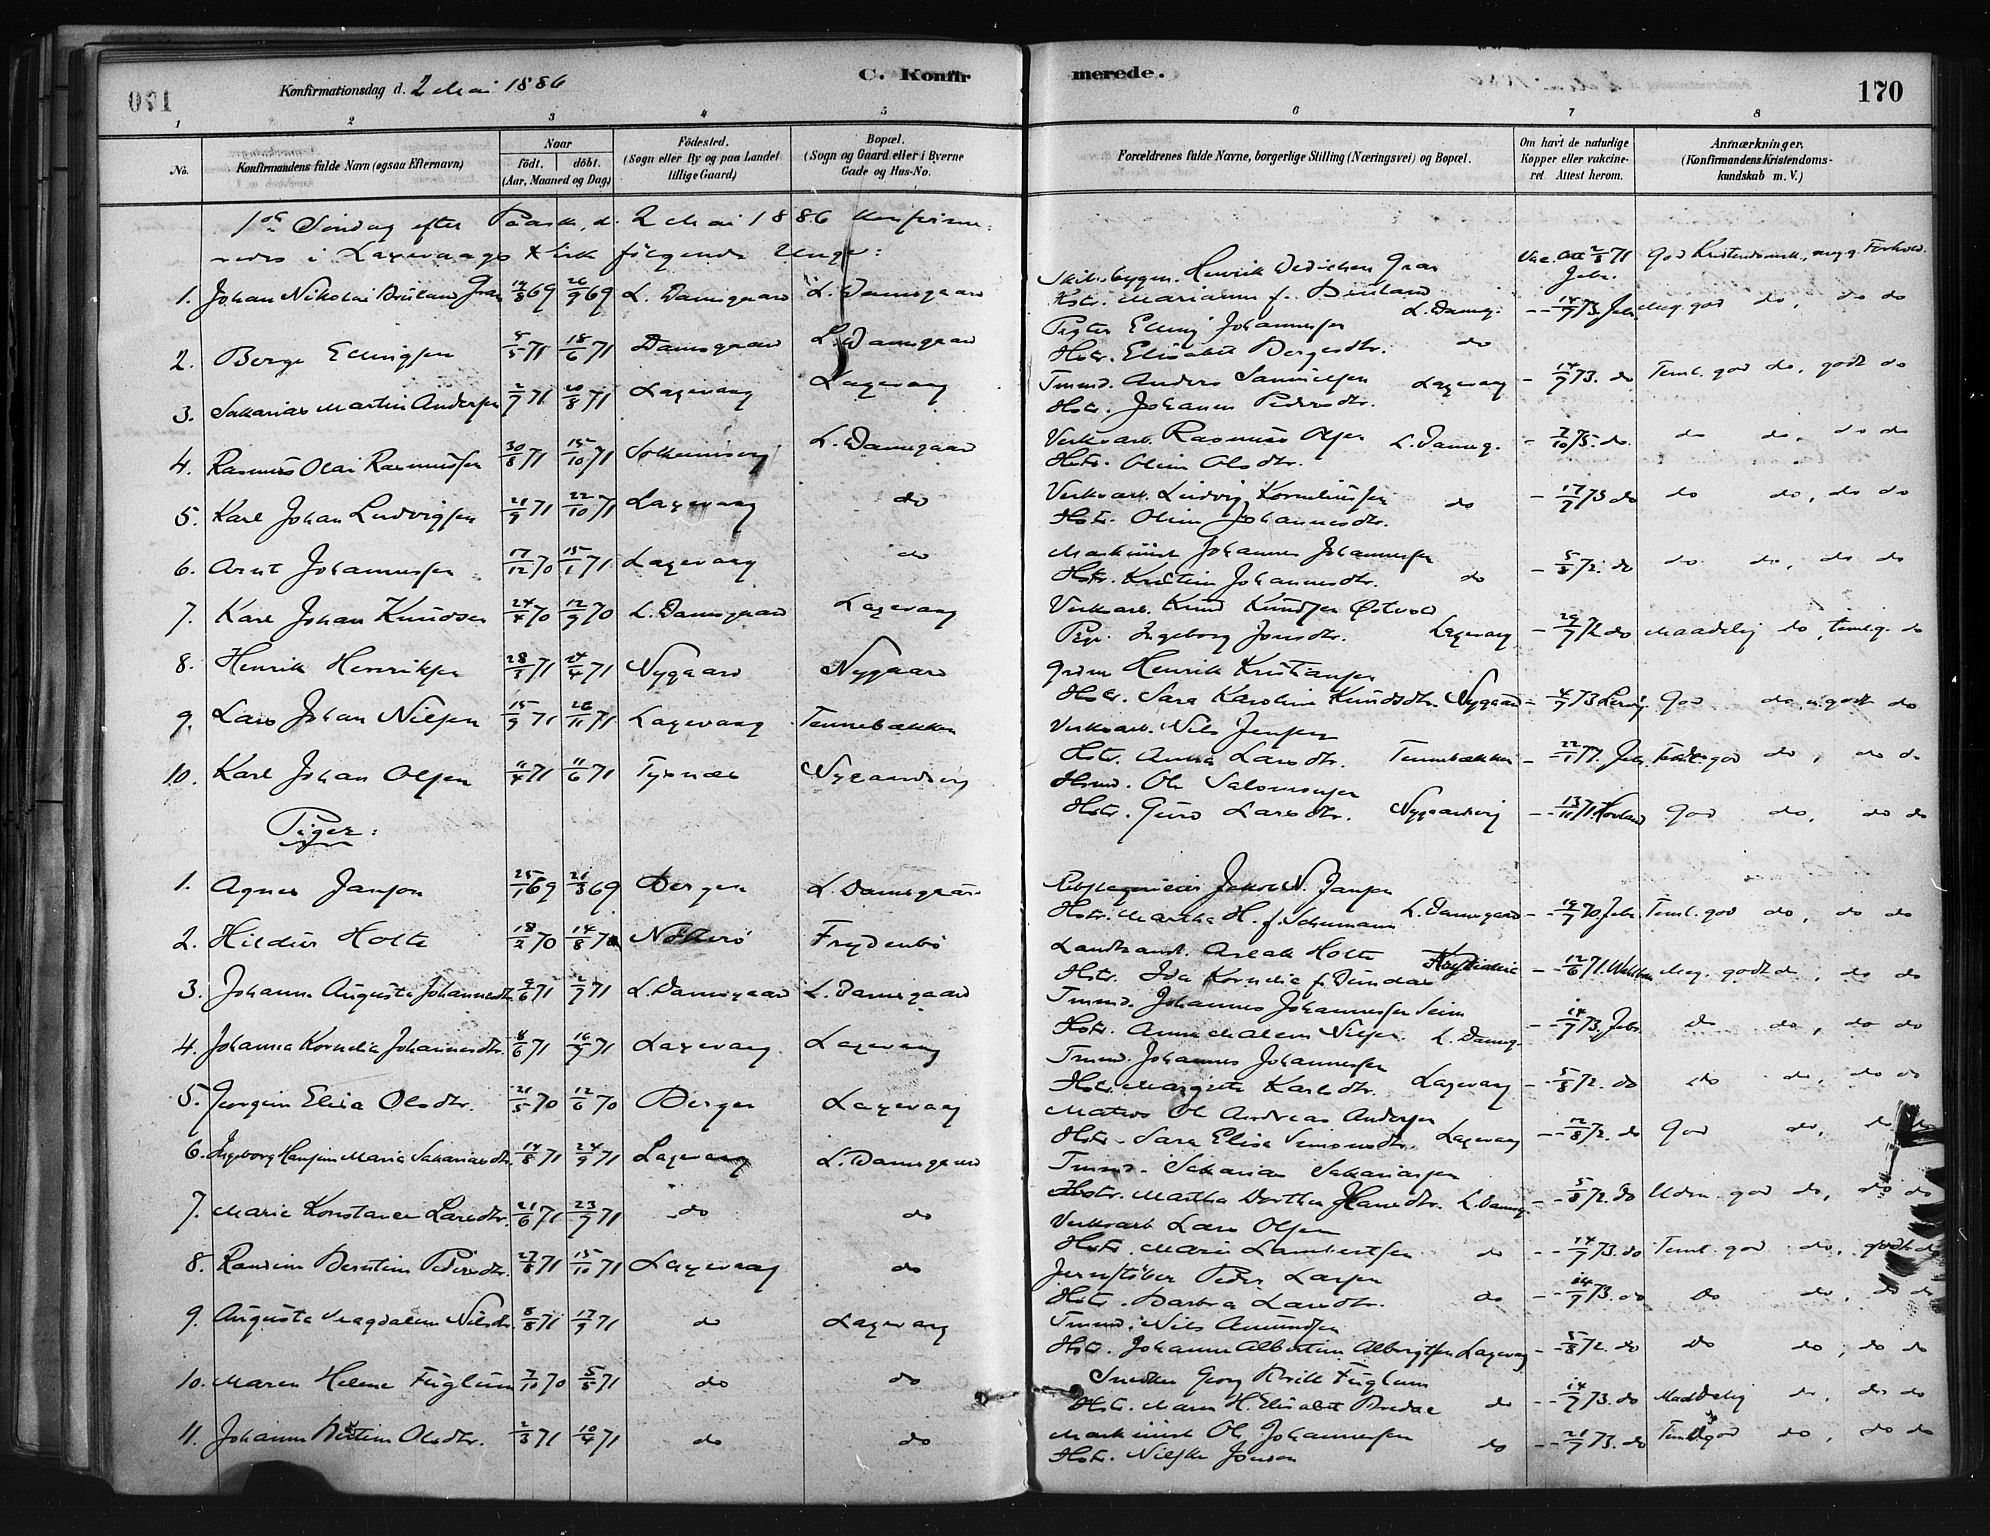 Konfirmationsdag d. 2 Mai 1886
C. Konfirmerede.
170
1 2 3 4 5 6 7 8
No. Konfirmandens fulde Navn (ogsaa Efternavn) Naar født. døbt. (Aar, Maaned og Dag) Fødested. (Sogn eller By og paa Landet tillige Gaard) Bopæl. (Sogn og Gaard eller i Byerne Gade og Hus-No. Forældrenes fulde Navne, borgerlige Stilling (Næringsvei) og Bopæl. Om havt de naturlige Kopper eller vakcineret. Attest herom. Anmærkninger. (Konfirmandens Kristendomskundskab m. V.)
1ste Søndag efter Paaske, d. 2 Mai 1886 konfirmeredes i Laxevaags Kirke følgende Unge:
1. Johan Nikolai Gran 26/9 69 L. Damsgaard L. Damsgaard Henrik Gran Hstr. Marianne f. L. Damsg. God Kristendomsk.
2. Berge Ellingsen 18/6 71 Damsgaard L. Damsgaard Elling Johannessen Hstr. Elisabet Bergesdtr. do 14/9 73. Meg. god do, do do
3. Sakarias Martin Andersen 7/7 71 8 71 Laxevaag Laxevaag Tmmd. Anders Samuelsen Hstr. Johanne Pedersdtr. Laxevaag 14/9 73. do Teml. god do, godt do
4. Rasmus Olai Rasmussen 30/8 71 15/10 71 L. Damsgaard Verksarb. Rasmus Olsen Hstr. Oline Olsdtr. L. Damsg. 7/10 75. do do do, do do
5. Karl Johan Ludvigsen 21/9 71 22/10 71 Laxevaag do Verksarb. Ludvig Korneliussen Hstr. Oline Johannesdtr. do 17/9 73 do do do, do do
6. Arnt Johannessen 17/12 70 15/1 71 Laxevaag do Maskinist Johannes Johannessen Hstr. Kristine Johannesdtr. do 5/8 72. do do do, do do
7. Karl Johan Knudsen 24/4 70 12/9 70 L. Damsgaard Laxevaag Verksarb. Knud Knudsen Østvold Pige Ingeborg Jonsdtr. Laxevaag 29/7 72 do Maadelig do, temlig. do
8. Henrik Henriksen 28/1 71 24/4 71 Nygaard Nygaard Henrik Kristiansen Hstr. Sara Karoline Knudsdtr. Nygaard God do, godt do
9. Lars Johan Nilsen 15/9 71 26/11 71 Laxevaag Tennebækken Verksarb. Nils Jensen Hstr. Anna Larsdtr. Tennebækken god do, do do
10. Karl Johan Olsen 11/4 71 11/6 71 Tysnæs Nygaardsvig Ole Salomonsen Hstr. Guro Larsdtr. Nygaardsvig 13/11 71. Hovland God do, do do
Piger:
1. Agnes Janson 25/1 69 21/3 69 Bergen L. Damsgaard Jakob N. Janson Hstr. Martha H. f. Schumann L. Damsgaard 19/7 70. Teml. god do, do do
2. Hildur Holte 18/2 70 14/8 70 Nøtterø Frydenbø Aslak Holte Hstr. Ida Kornelia f. 12/6 71. Meg. godt do, do do
3. Johanne Augusta Johannesdtr. 71 71 L. Damsgaard L. Damsgaard Tmmd. Johannes Johannessen Seim Hstr. Anne Malene Nilsen L. Damsg. 14/9 73. do do, do do
4. Johanna Kornelia Johannesdtr. 8/6 71 16/7 71 Laxevaag Laxevaag Tmmd. Johannes Johannessen Hstr. Margrete Karlsdtr. Laxevaag 5/8 72. do do do, do do
5. Jørgine Elisa Olsdtr. 21/5 70 12/6 70 Bergen Laxevaag Matros Ole Andreas Andersen Hstr. Sara Elisa Simonsdtr. Laxevaag 12/8 72. do God do, do do
6. Ingeborg Hansine Maria Sakariasdtr. 14/8 71 24/9 71 Laxevaag L. Damsgaard Tmmd. Sakarias Sakariassen Hstr. Martha Dorthea Hansdtr. L. Damsg. 5/8 72. do Uden. god do, do do
7. Marie Konstance Larsdtr. 21/6 71 23/7 71 do do Verksarb. Lars Olsen Hstr. Marie Lambertsen do 14/9 73. do Teml. god do, godt do
8. Bertine Pedersdtr. 27/8 71 15/10 71 Laxevaag do Jernstøber Peder Larsen Hstr. Barbra Larsdtr. do 14/9 73. do do do, do do
9. Augusta Magdalene Nilsdtr. 8/8 71 17/9 71 do Laxevaag Tmmd. Nils Amundsen Hstr. Johanne Albertine Albrigtsen Laxevaag 5/8 72. do do do, do do
10. Maren Helene Fuglum 7/10 70 5/5 71 do do Smeden Georg Fuglum Hstr. Maren H. Elisabet Bredal do 14/9 73. do Maadelig do, do do
11. Johanne Olsdtr. 2/3 71 10/4 71 do do Maskinist Ole Johannessen Hstr. Jonson do 21/9 73. do Teml. god do, do do